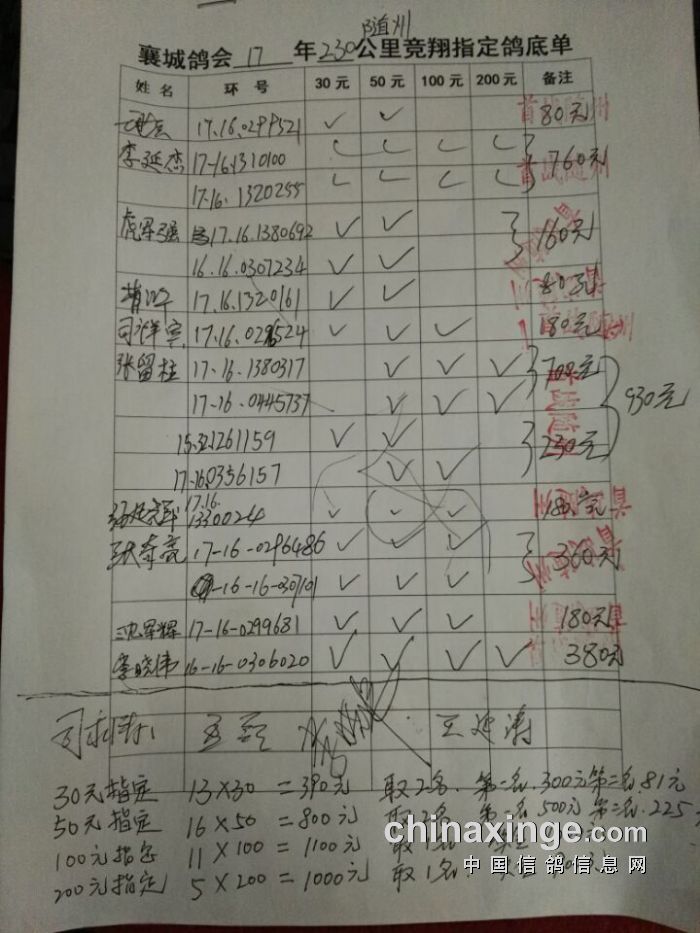 随州
襄城鸽会 17 年 230 公里竞翔指定鸽底单
姓名 环号 30元 50元 100元 200元 备注
17.16.0299521 ✓ ✓ 80元
李延杰 17-16-1310100 ✓ ✓ ✓ ✓ 760元
17.16.1320255 ✓ ✓ ✓ ✓
虎军强 17.16.1380692 ✓ ✓ 160元
16.16.0307234 ✓ ✓
17.16.1320161 ✓ ✓ 80元
17.16. ✓ ✓ ✓ 180元
张留柱 17-16-1380317 ✓ ✓ ✓ 700元 930元
17-16-0445737 ✓ ✓ ✓
1261159 ✓ ✓ 230元
17-16.0356157 ✓ ✓
17.16.
1330024 ✓ ✓ ✓ 180元
17-16-0296486 ✓ ✓ ✓ 360元
16-16-0307101 ✓ ✓ ✓
沈军辉 17-16-0299681 ✓ ✓ ✓ 180元
李晓伟 16-16-0306020 ✓ ✓ ✓ ✓ 380元
王延涛
30元指定 13×30=390元 取2名. 第一名.300元第二名.81元
50元指定 16×50=800元 取2名 第一名 500元 第二名.225
100元指定 11×100=1100元 取1名
200元指定 5×200=1000元 取1名.
chinaxinge.com
中国信鸽信息网